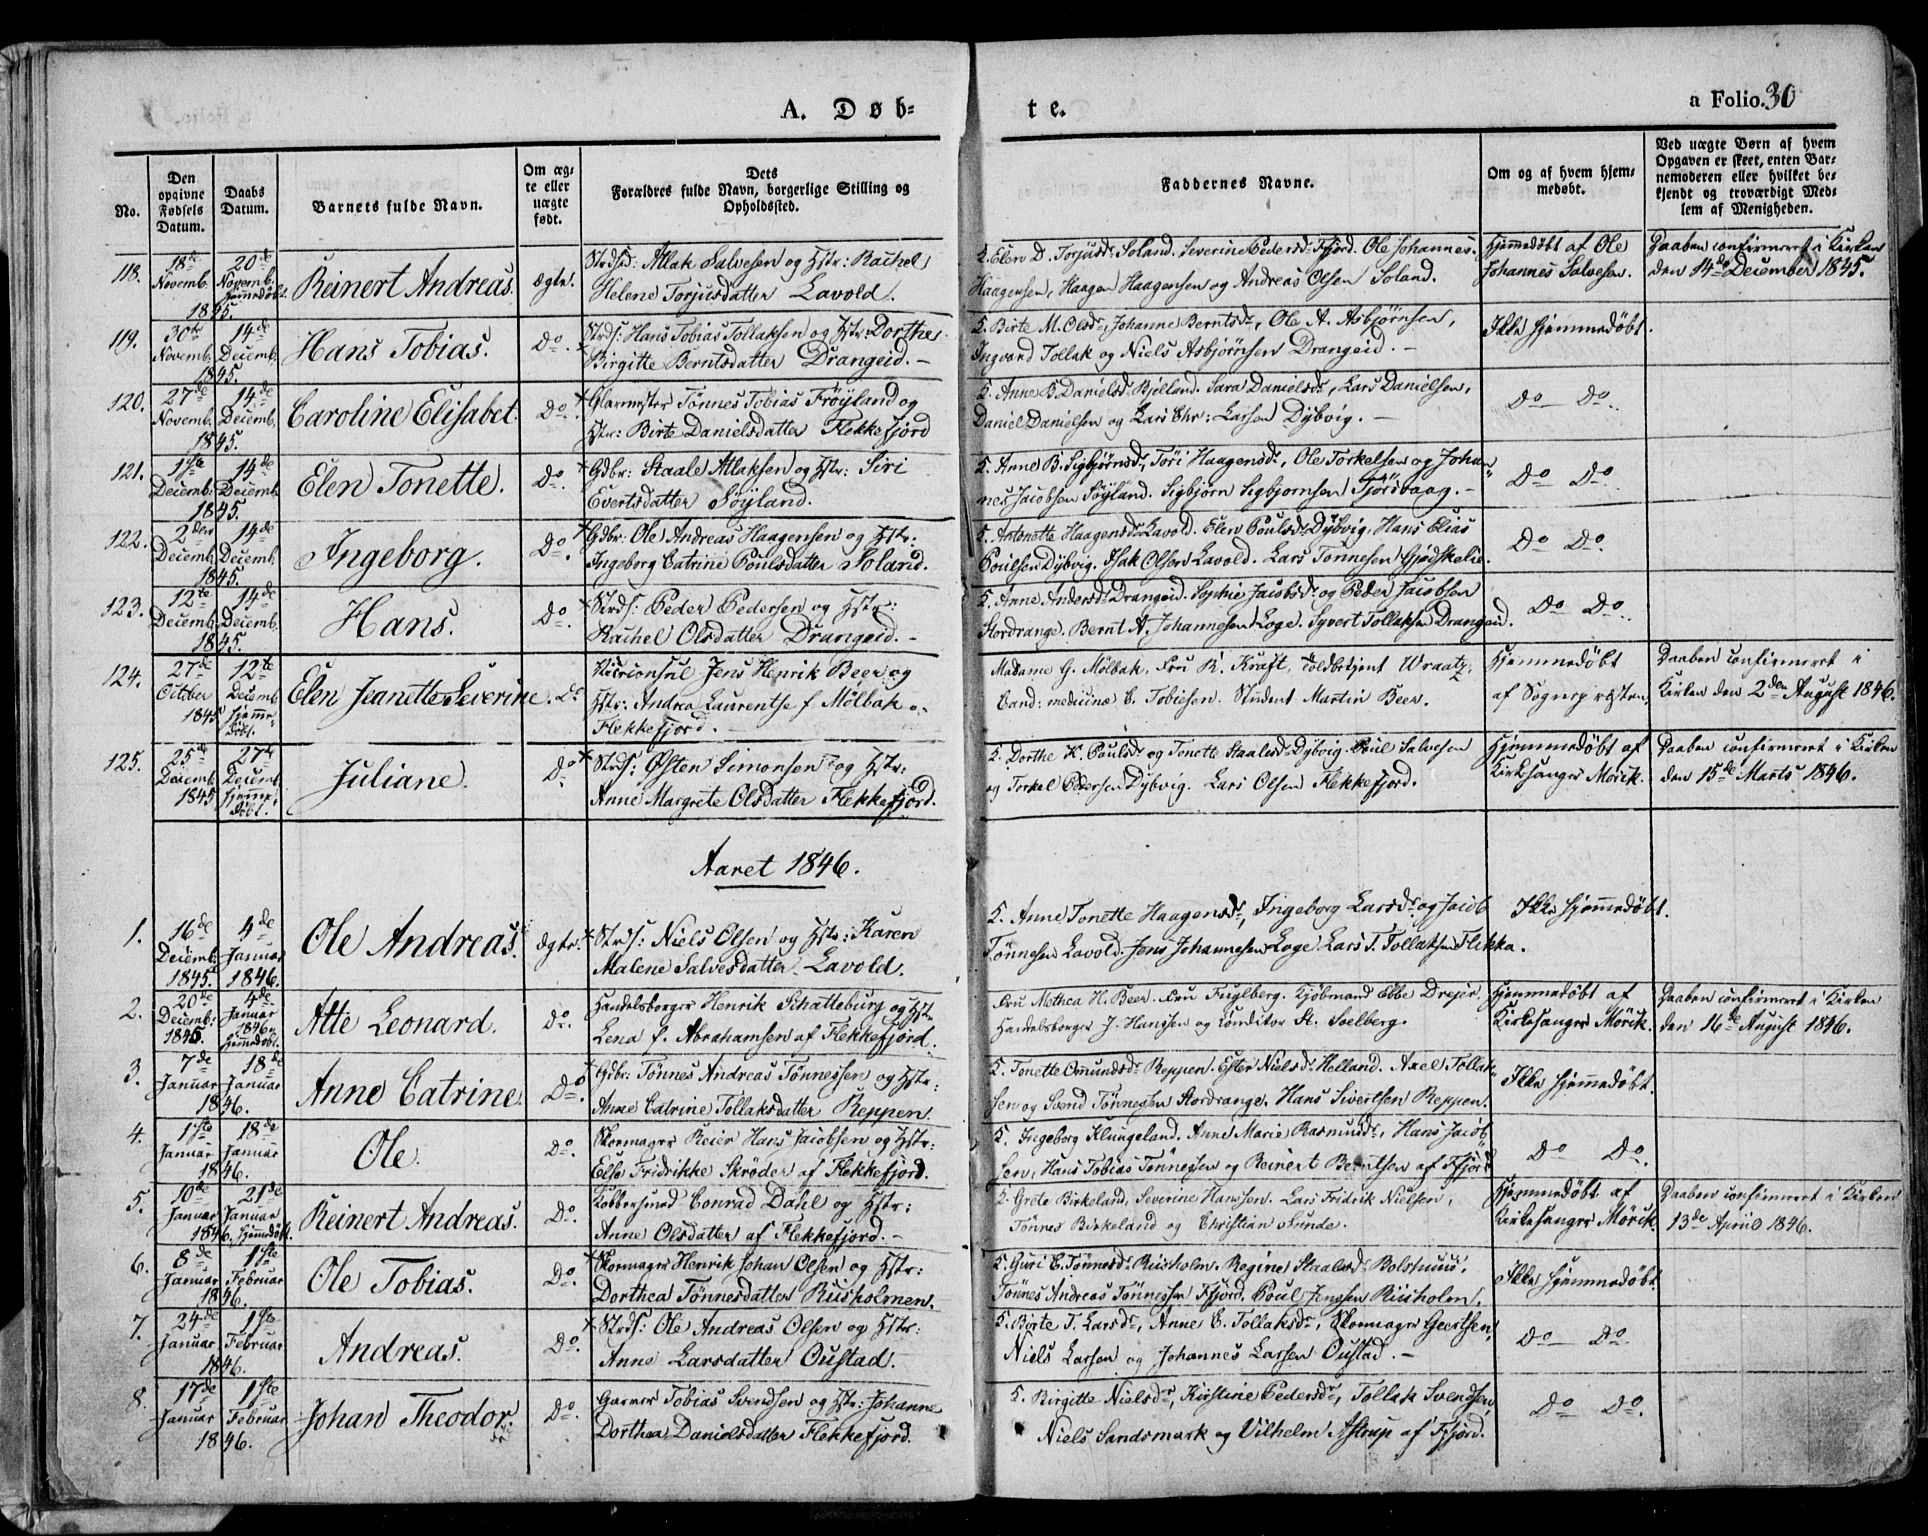 A. Døb-
te.
a Folio. 30
No.
Den opgivne Fødsels Datum.
Daabs Datum.
Barnets fulde Navn.
Om ægte eller uægte født.
Dets Forældres fulde Navn, borgerlige Stilling og Opholdssted.
Faddernes Navne.
Om og af hvem hjemmedøbt.
Ved uægte Børn af hvem Opgaven er skeet, enten Barnemoderen eller hvilket bekjendt og troværdigt Medlem af Menigheden.
118. 18de Novemb. 1845. 20de Novemb. hjemmedöbt. Reinert Andreas. ægte.
Strds: Atlak Salvesen og Hstr: Rachel
Helene Torjusdatter Lavold.
F. Elen D. Torjusd. Soland. Severine Pedersd. Ffjord. Ole Johannes.
Haagensen, Haagen Haagensen og Andreas Olsen Soland.
Hjemmedøbt af Ole
Johannes Salvesen.
Daaben confirmeret i Kirken
den 14de December 1845.
119. 30te Novemb. 1845. 14de Decemb. Hans Tobias. Do.
Strds: Hans Tobias Tollaksen og Hstr: Dorthe
Birgitte Berntsdatter Drangeid. -
F. Birte M. Olsdr, Johanne Berntsdr, Ole A. Asbjørnsen,
Ingvard Tollak og Niels Asbjørnsen Drangeid. -
Ikke hjemmedöbt.
120. 27de Novemb. 1845. 14de Decemb. Caroline Elisabet. Do.
Glarmester Tönnes Tobias Fröyland og
Hstr: Birte Danielsdatter Flekkefjord
F. Anne B. Danielsd. Bjelland. Sara Danielsdr, Lars Danielsen,
Daniel Danielsen og Lars Chr: Larsen Dybvig. -
Do Do.
121. 1ste Decemb. 1845. 14de Decemb. Elen Tonette. Do.
Gdbr: Staale Atlaksen og Hstr: Siri
Evertsdatter Söyland.
F. Anne B. Sigbjørnsdr, Töri Haagensdr, Ole Torkelsen og Johan-
nes Jacobsen Söyland. Sigbjörn Sigbjornsen Fjörsvaag. -
Do Do.
122. 2den Decemb. 1845. 14de Decemb. Ingeborg. Do.
Gdbr: Ole Andreas Haagensen og Hstr:
Ingeborg Catrine Poulsdatter Soland.
F. Antonette Haagensd. Lavold. Elen Poulsd. Dybvig. Hans Elias
Poulsen Dybvig. Isak Olsen Lavold. Lars Tonnesen Gjødskelie.
Do Do.
123. 12te Decemb. 1845. 14de Decemb. Hans. Do.
Strds: Peder Pedersen og Hstr:
Rachel Olsdatter Drangeid. -
F. Anne Andersd. Drangeid. Sophie Jacobsdr og Peder Jacobsen
Stordrange. Bernt A. Johannesen Loge. Syvert Tollaksen Drangeid.
Do Do.
124. 27de October 1845 12te Decemb. hjemmedöbt. Elen Jeanette Severine. Do
Viceconsul Jens Henrik Beer og
Hstr: Andrea Laurentse f. Mölbak.
Flekkefjord. -
Madame G. Mölbak. Fru R. Kraft. Toldbetjent Wraatz.
Cand: medicine C. Tobiesen. Student Martin Beer.
Hjemmedöbt
af Sognepræsten.
Daaben confirmeret i
Kirken den 2den August 1846.
125. 25de Decemb. 1845 27de Decemb. hjemmedöbt. Juliane. Do
Strds: Østen Simonsen og Hstr:
Anne Margrete Olsdatter Flekkefjord.
F. Dorthe K. Poulsdr og Tonette Staalesd. Dybvig. Poul Salvesen
og Torkel Pedersen Dybvig. Lars Olsen Flekkefjord.
Hjemmedöbt af
Kirkesanger Mörik.
Daaben confirmeret i Kirken
den 15de Marts 1846.
Aaret 1846.
1. 16de Decemb. 1845. 4de Januar 1846. Ole Andreas. ægte.
Strds: Niels Olsen og Hstr: Karen
Malene Salvesdatter Lavold.
F. Anne Tonette Haagensdr, Ingeborg Larsdr og Jacob
Tönnesen Lavold. Jens Johannesen Loge. Lars T. Tollaksen Flikka.
Ikke hjemmedöbt.
2. 20de Decemb: 1845. 4de Januar 1846. hjemmedöbt. Atte Leonard. Do.
Handelsborger Henrik Schatteburg og Hstr
Lena f. Abrahamsen af Flekkefjord.
Fru Methea H. Beer. Fru Fuglberg. Kjöbmand Ebbe Drejer.
Handelsborger J. Hanssen og Conditor St. Soelberg.
Hjemmedöbt af
Kirkesanger Mörik.
Daaben confirmeret i Kirken
den 16de August 1846.
3. 7de Januar 1846. 18de Januar Anne Catrine. Do.
Gdbr: Tönnes Andreas Tönnessen og Hstr:
Anne Catrine Tollaksdatter Reppen.
F. Tonette Omundsdr Reppen. Ester Nielsd. Helland. Axel Tollak-
sen og Svend Tönnessen Stordrange. Hans Sivertsen Reppen.
Ikke hjemmedöbt.
4. 1ste Januar 1846. 18de Januar Ole. Do.
Skomager Reier Hans Jacobsen og Hstr:
Else Fridrikke Skröder af Flekkefjord.
F. Ingeborg Klungeland. Anne Marie Rasmusdr, Hans Jacob-
sen, Hans Tobias Tönnessen og Reinert Berntsen af Ffjord
Do Do.
5. 10de Januar 1846. 21de Januar hjemmedöbt. Reinert Andreas. Do.
Kobbersmed Conrad Dahl og Hstr:
Anne Olsdatter af Flekkefjord. -
F. Grete Birkeland, Severine Hanssen. Lars Fridrik Nielsen,
Tönnes Birkeland og Christian Lunde.
Hjemmedöbt af
Kirkesanger Mörik.
Daaben confirmeret i Kirken
13de April 1846.
6. 8de Januar 1846. 1ste Februar Ole Tobias. Do.
Skomager Henrik Johan Olsen og Hstr:
Dorthea Tönnesdatter Riisholmen.
F. Guri E. Tönnesd. Riisholm. Regine Staalesd. Bolshuus.
Tönnes Andreas Tönnessen Ffjord. Poul Jenssen Riisholm.
Ikke hjemmedöbt.
7. 24de Januar 1846. 1ste Februar Andreas. Do.
Strds: Ole Andreas Olsen og Hstr:
Anne Larsdatter Oustad.
F. Birte T. Larsdr, Anne E. Tollaksdr, Skomager Geertsen,
Niels Larsen og Johannes Larsen Oustad. -
Do Do.
8. 17de Januar 1846. 1ste Februar Johan Theodor. Do.
Garver Tobias Svendsen og Hstr: Johanne
Dorthea Danielsdatter Flekkefjord.
F. Birgitte Nielsdr, Kirstine Pedersdr, Tollak Svendsen,
Niels Sandsmark og Vilhelm Astrup af Ffjord.
Do Do.